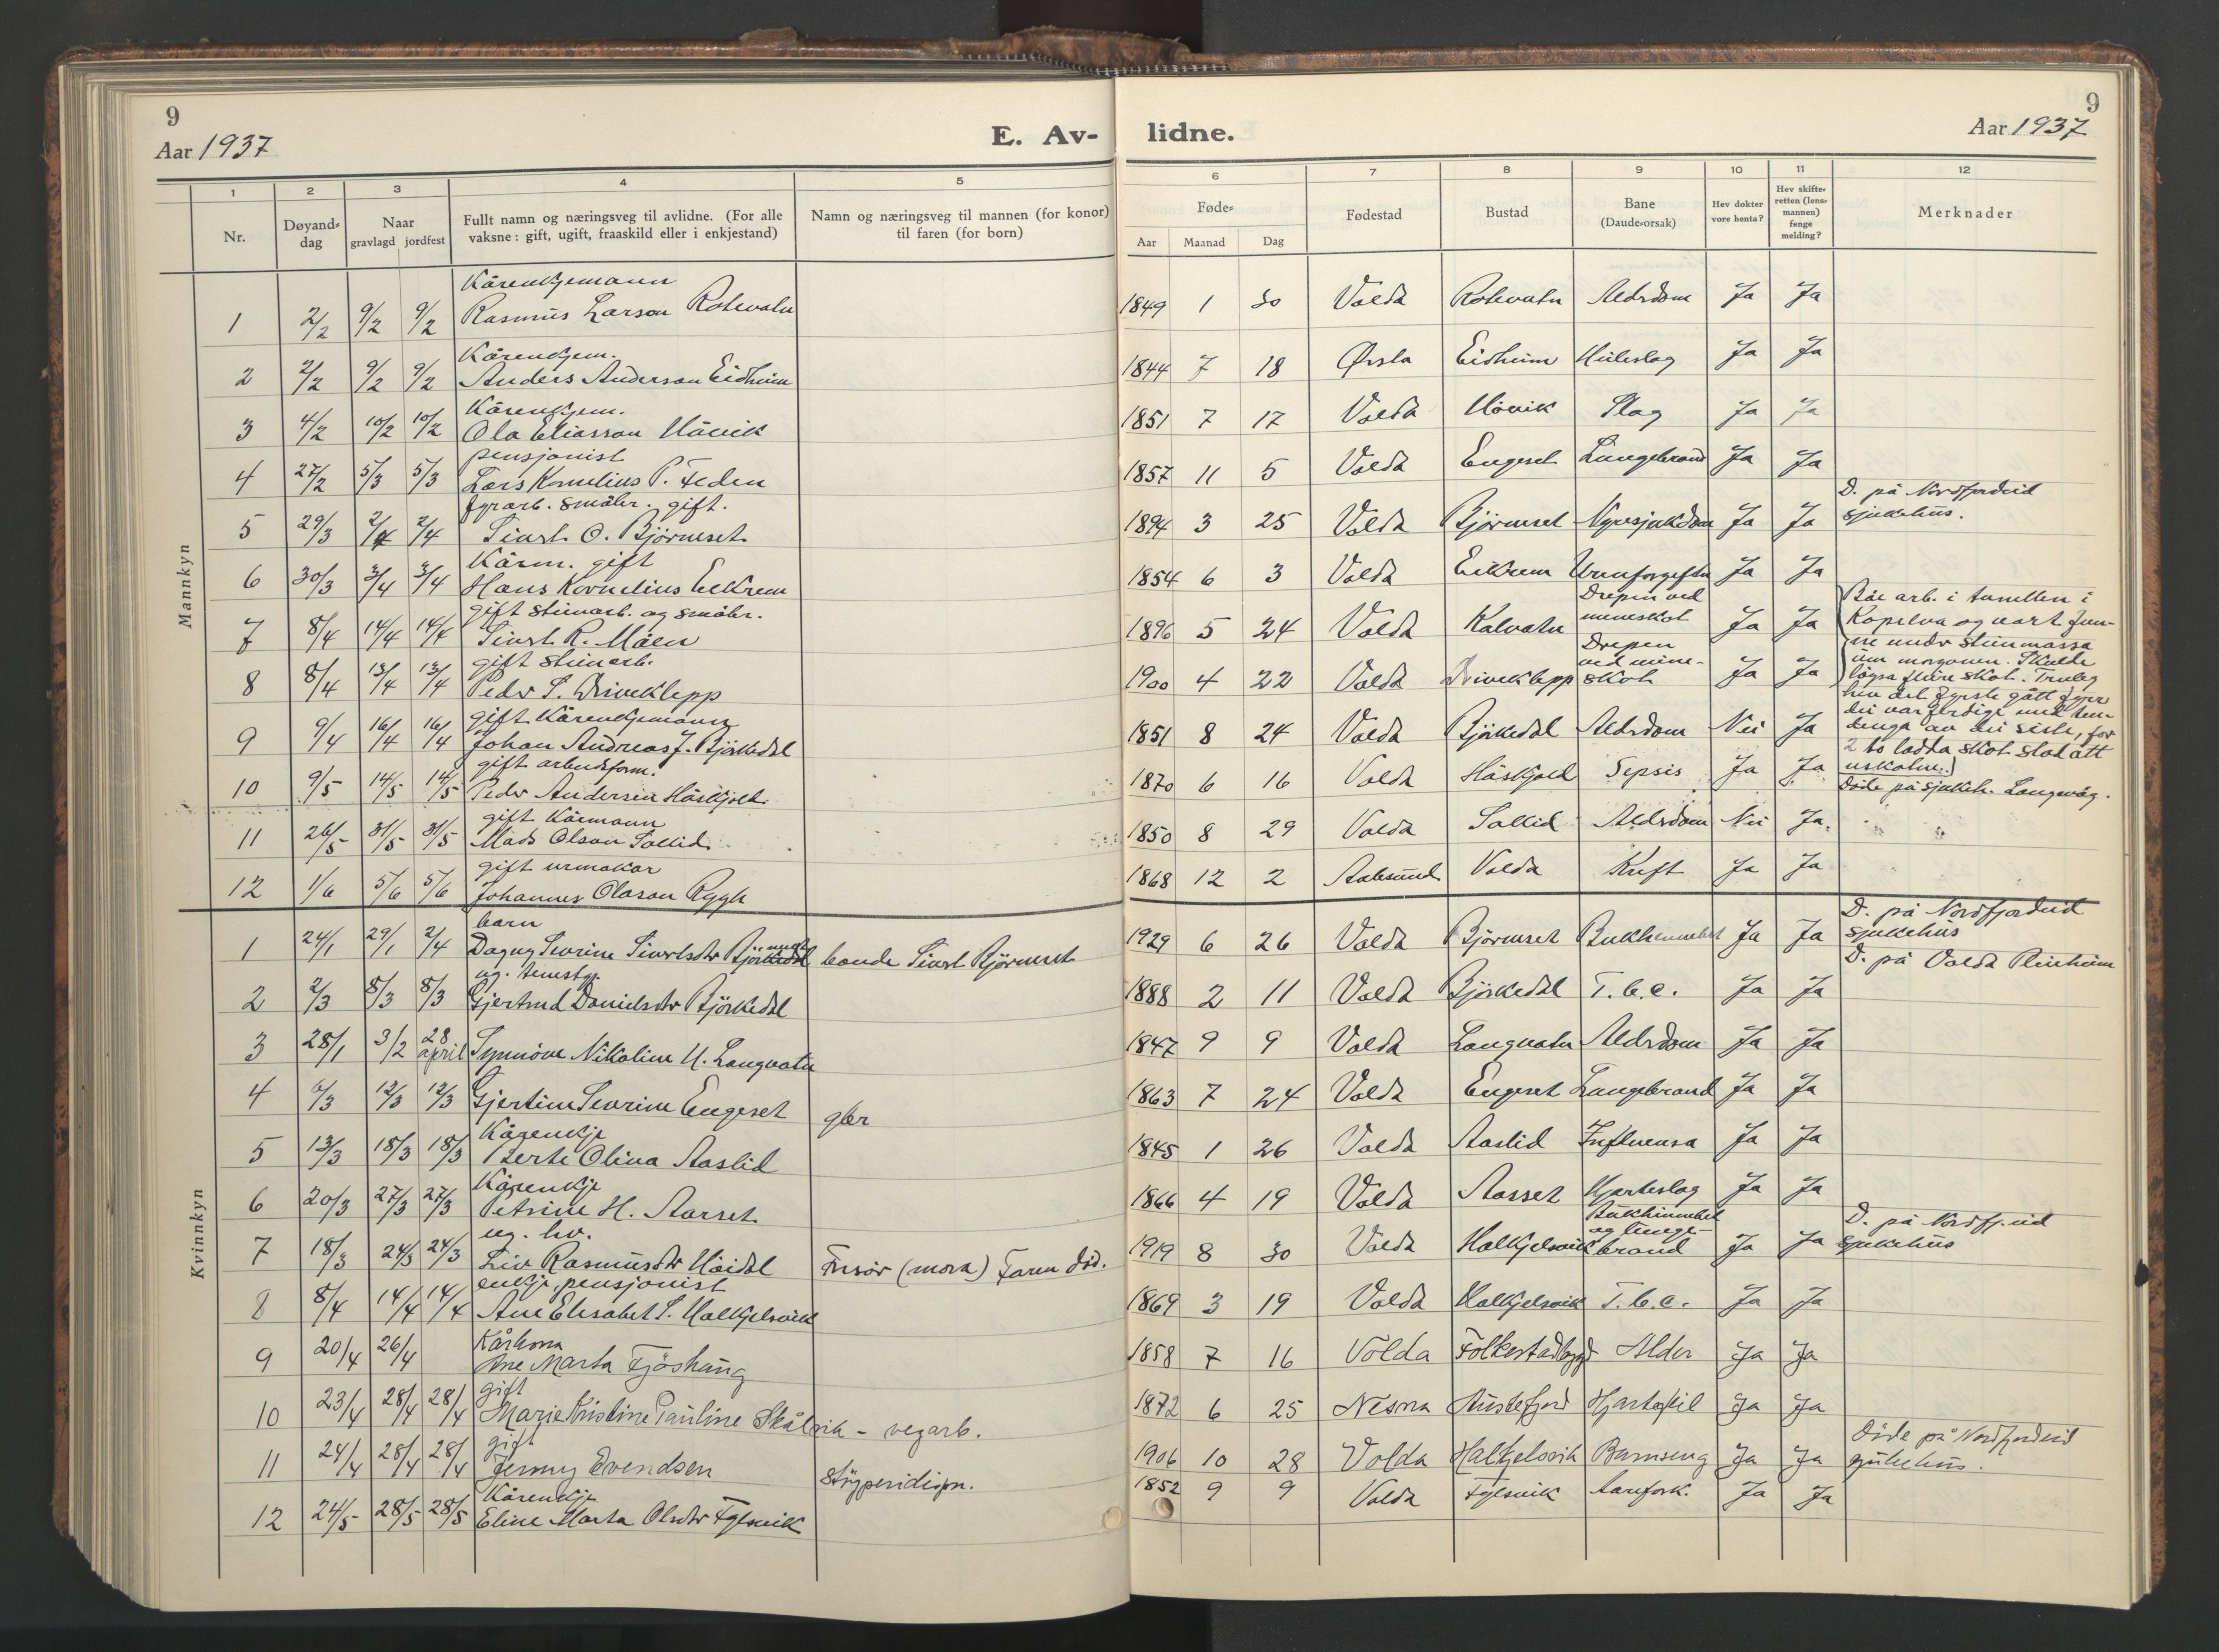 9
Aar 1937
E. Av-
1
2
3
4
5
Nr.
Døyands-
dag
Naar
gravlagd jordfest
Fullt namn og næringsveg til avlidne. (For alle
vaksne: gift, ugift, fraaskild eller i enkjestand)
Namn og næringsveg til mannen (for konor)
til faren (for born)
Mannkyn
Kårenkjemann
1 2/2 9/2 9/2 Rasmus Larson Rotevatn
Kårenkjem.
2 2/2 9/2 9/2 Anders Anderson Eidheim
Kårenkjem.
3 4/2 10/2 10/2 Ola Eliasson Håvik
pensjonist
4 27/2 5/3 5/3 Lars Kornelius P.
fyrarb. småbr. gift.
5 29/3 2/4 2/4 Sivert O. Bjørneset
Kårm. gift
6 30/3 3/4 3/4 Hans Kornelius Eikrem
gift steinarb. og småbr.
7 8/4 14/4 14/4 Sivert R. Måen
gift steinarb.
8 8/4 13/4 13/4 Peder S. Driveklepp
gift Kårenkjemann
9 9/4 16/4 16/4 Johan Andreas J. Bjørkedal
gift arbeidsform.
10 9/5 14/5 14/5 Peder Andersen Håskjold
gift Kårmann
11 26/5 31/5 31/5 Mads Olson Sollid
gift urmakar
12 1/6 5/6 5/6 Johannes Olason Rygh
Kvinnkyn
barn
1 24/1 29/1 2/4 Dagny Severine Sivertsdtr bonde Sivert Bjørneset
ug. tenestgj.
2 2/3 8/3 8/3 Gjertrud Danielsdtr Bjørkedal
3 28/1 3/2 28 april Synnøve Nikoline U. Langvatn
4 12/3 12/3 Gjertine Severine Engeset gbr
Kårenkje
5 13/3 18/3 18/3 Berte Oliva Aaslid
Kårenkje
6 20/3 27/3 27/3 Petrine H. Aarset
ug. hv.
7 18/3 24/3 24/3 Liv Rasmusdtr Høidal Frisør (mora) Faren död.
enkje, pensjonist
8 8/4 14/4 14/4 Ane Elisabet S. Halkjelsvik
Kårkona
9 20/4 26/4 Ane Marta Fjöshaug
gift
10 23/4 28/4 28/4 Marie Kristine Pauline Skålvik - vegarb.
gift
11 24/4 28/4 28/4 Jenny Evendsen
Kårenkje
12 24/5 28/5 28/5 Eline Marta Olsdtr Fylsvik
lidne.
9
Aar 1937
6
7
8
9
10
11
12
Føde-
Aar Maanad Dag
Fødestad
Bustad
Bane
(Daude-orsak)
Hev dokter
vore henta?
Hev skifte-
retten (lens-
mannen)
fenge
melding?
Merknader
1849 1 30 Volda Rotevatn Aldrdom Ja Ja
1844 7 18 Ørsta Eidheim Heileslag Ja Ja
1851 7 17 Volda Håvik Slag Ja Ja
1857 11 5 Volda Engeset Lungebrand Ja Ja
D. på Nordfjordeid
sjukehus.
1894 3 25 Volda Bjørneset Nyresjukdom Ja Ja
1854 6 3 Volda Eikrem Urinforgiftn Ja Ja
Drepen ved
1896 5 24 Volda Kalvatn mineskot Ja Ja
Drepen
ved mine-
1900 4 22 Volda Driveklepp skot Ja Ja
Båe arb. i tunellen i
Kopelva og vart fun-
ne under steinmassa
um morgonen. Skulde
løysa fleire skot. Truleg
hev det fyrste gått fyrr
dei var ferdige med ten-
dinga av dei siste, for
2 to ladda skot stod att
uskotne.)
1851 8 24 Volda Bjørkedal Aldrdom Nei Ja
1870 6 16 Volda Håskjold Sepsis Ja Ja
Döde på sjukeh. Langevåg.
1850 8 29 Volda Sollid Aldrdom Nei Ja
1868 12 2 Aalesund Volda Kreft Ja Ja
D. på Nordfjordeid
sjukehus
1929 6 26 Volda Bjørneset Bukhinnebet Ja Ja
D. på Volda Pleieheim
1888 2 11 Volda Bjørkedal T.b.c. Ja Ja
1847 9 9 Volda Langvatn Aldrdom Ja Ja
1863 7 24 Volda Engeset Lungebrand Ja Ja
1845 1 26 Volda Aaslid Influensa Ja Ja
1866 4 19 Volda Aasset Hjarteslag Ja Ja
Bukhinnebet
og lunge-
1919 8 30 Volda Halkjelsvik brand Ja Ja
D. på Nordfj.eid
sjukehus
1869 3 19 Volda Halkjelsvik T.b.c. Ja Ja
1858 7 16 Volda Folkestadbygd Alder Ja Ja
1872 6 25 Nesna Austefjord Hjartefeil Ja Ja
1906 10 28 Volda Halkjelsvik Barnseng Ja Ja
Döde på Nordfjordeid
sjukehus.
1852 9 9 Volda Fylsvik Aarefork. Ja Ja